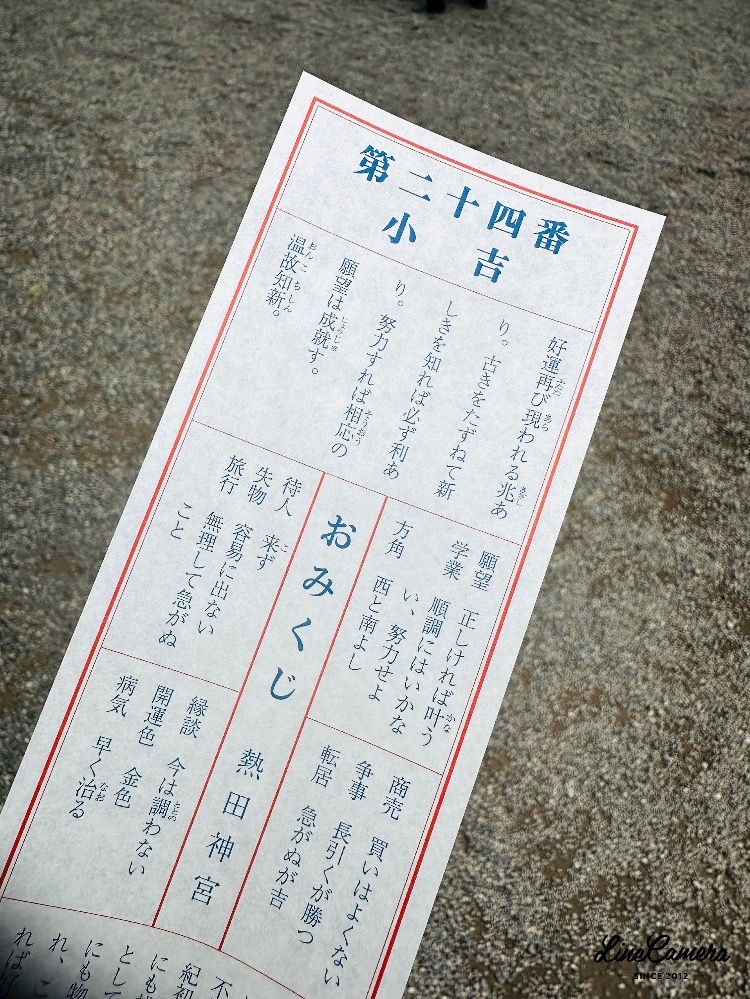 第二十四番
小吉
好運再び現われる兆あ
り。古きをたずねて新
しきを知れば必ず利あ
り。努力すれば相応の
願望は成就す。
温故知新。
願望 正しければ叶う
学業 順調にはいかな
い、努力せよ
方角 西と南よし
商売 買いはよくない
争事 長引くが勝つ
転居 急がぬが吉
おみくじ 熱田神宮
待人 来ず
失物 容易に出ない
旅行 無理して急がぬ
こと
縁談 今は調わない
開運色 金色
病気 早く治る
LineCamera
SINCE 2012